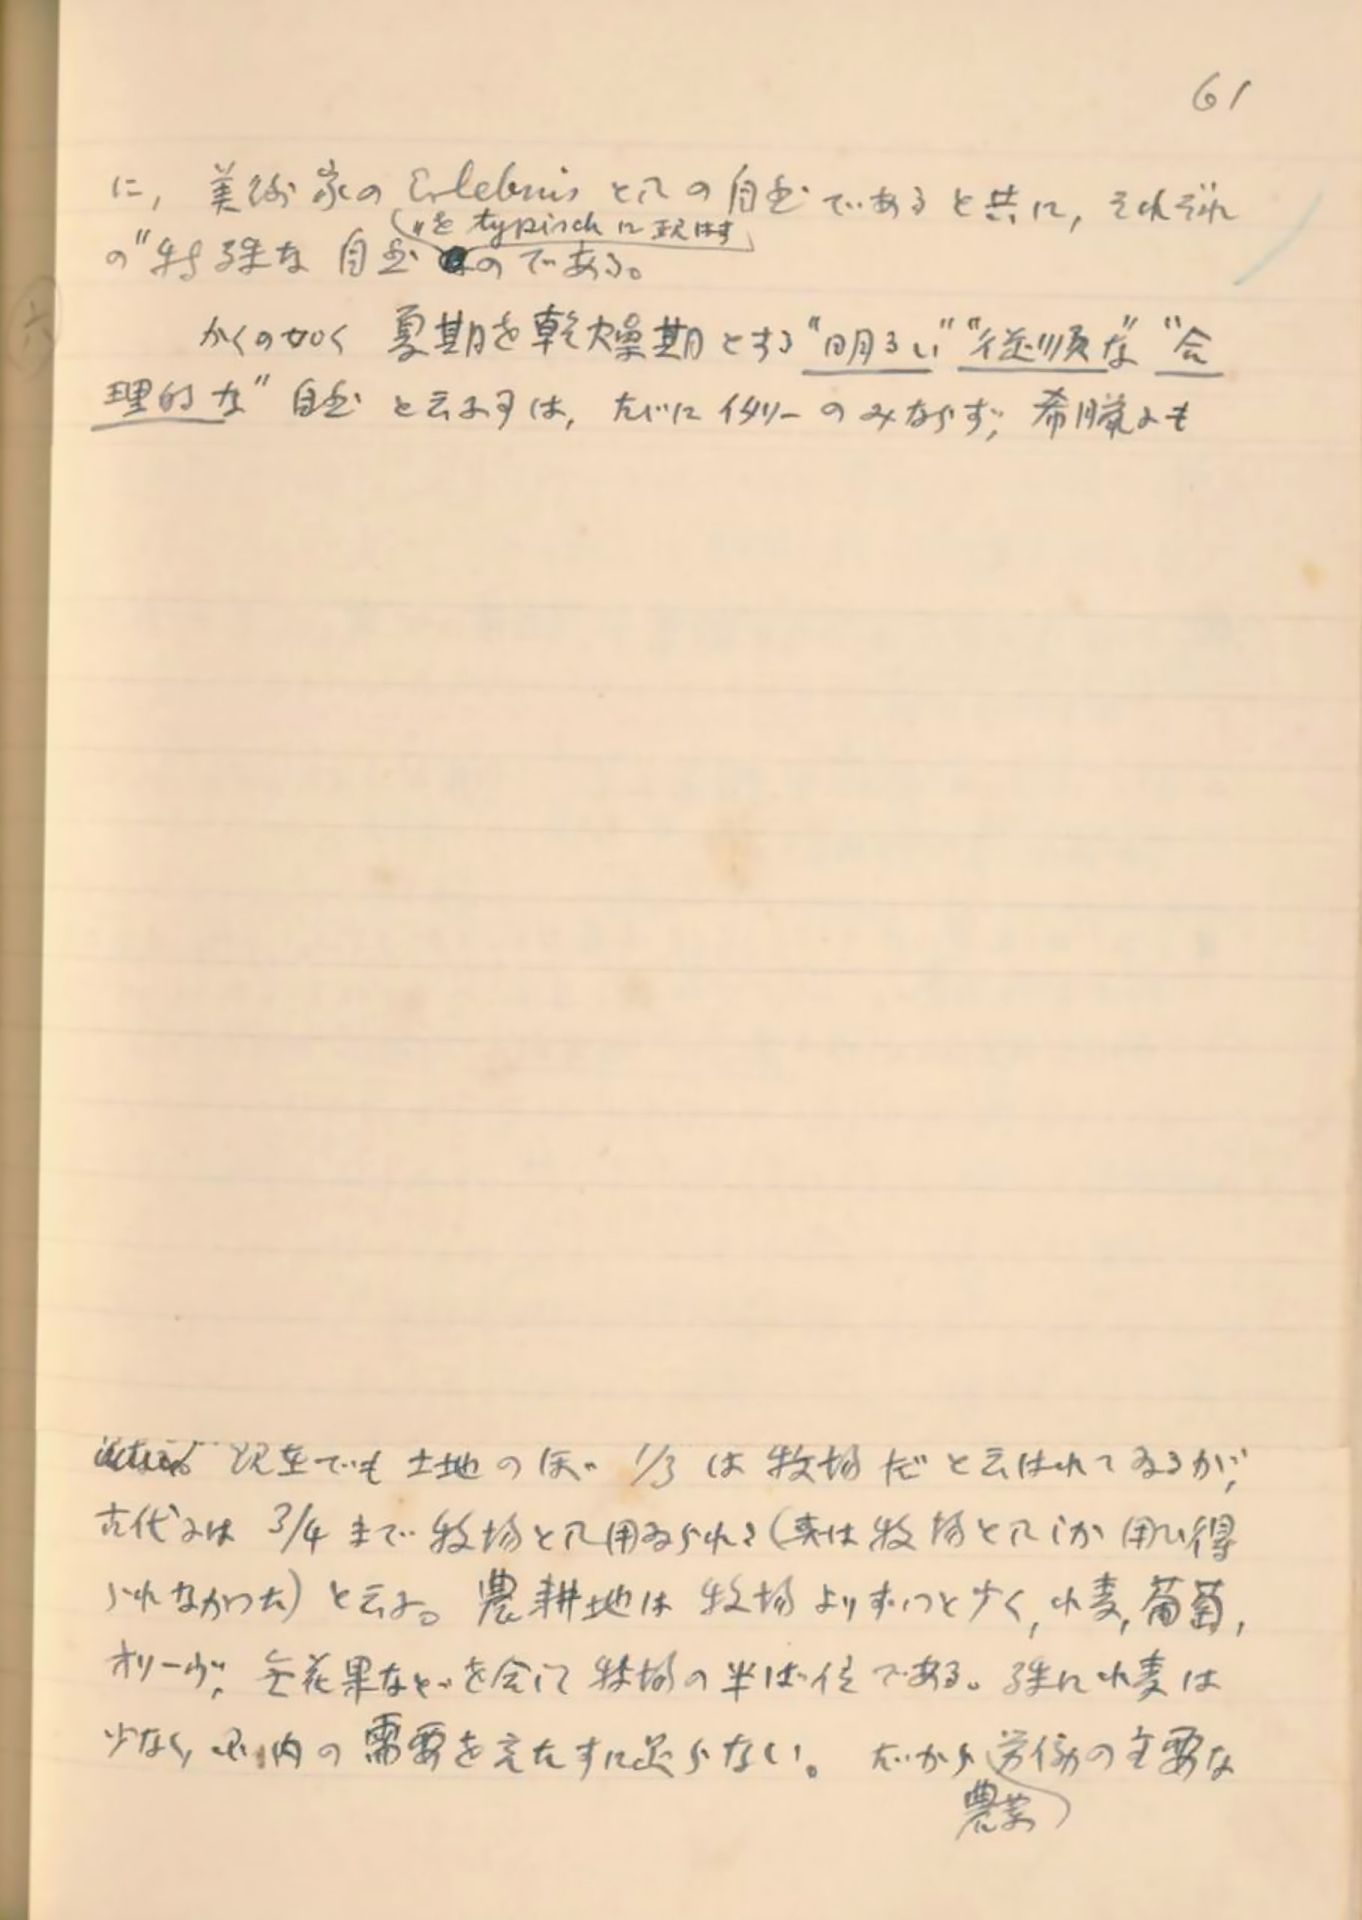 61
に, 美術家の Erlebnis としての自然であると共に, それぞれ
〃を typisch に現はす
の"特殊な自然のである。
六
かくの如く 夏期を乾燥期とする "明るい" "従順な" "合
理的な" 自然 と云ふ事は, たゞに イタリーのみならず, 希臘にも
現在でも 土地のほゞ 1/3 は 牧場だ と云はれてゐるが,
古代には 3/4 まで 牧場として用ゐられた (実は牧場としてしか 用ひ得
られなかつた) と云ふ。 農耕地は 牧場よりずつと少く, 小麦, 葡萄,
オリーヴ, 無花果などを合して 牧場の半ば位である。殊に小麦は
少なく, 国内の需要を充たすに足らない。 だから 労働の主要な
農業